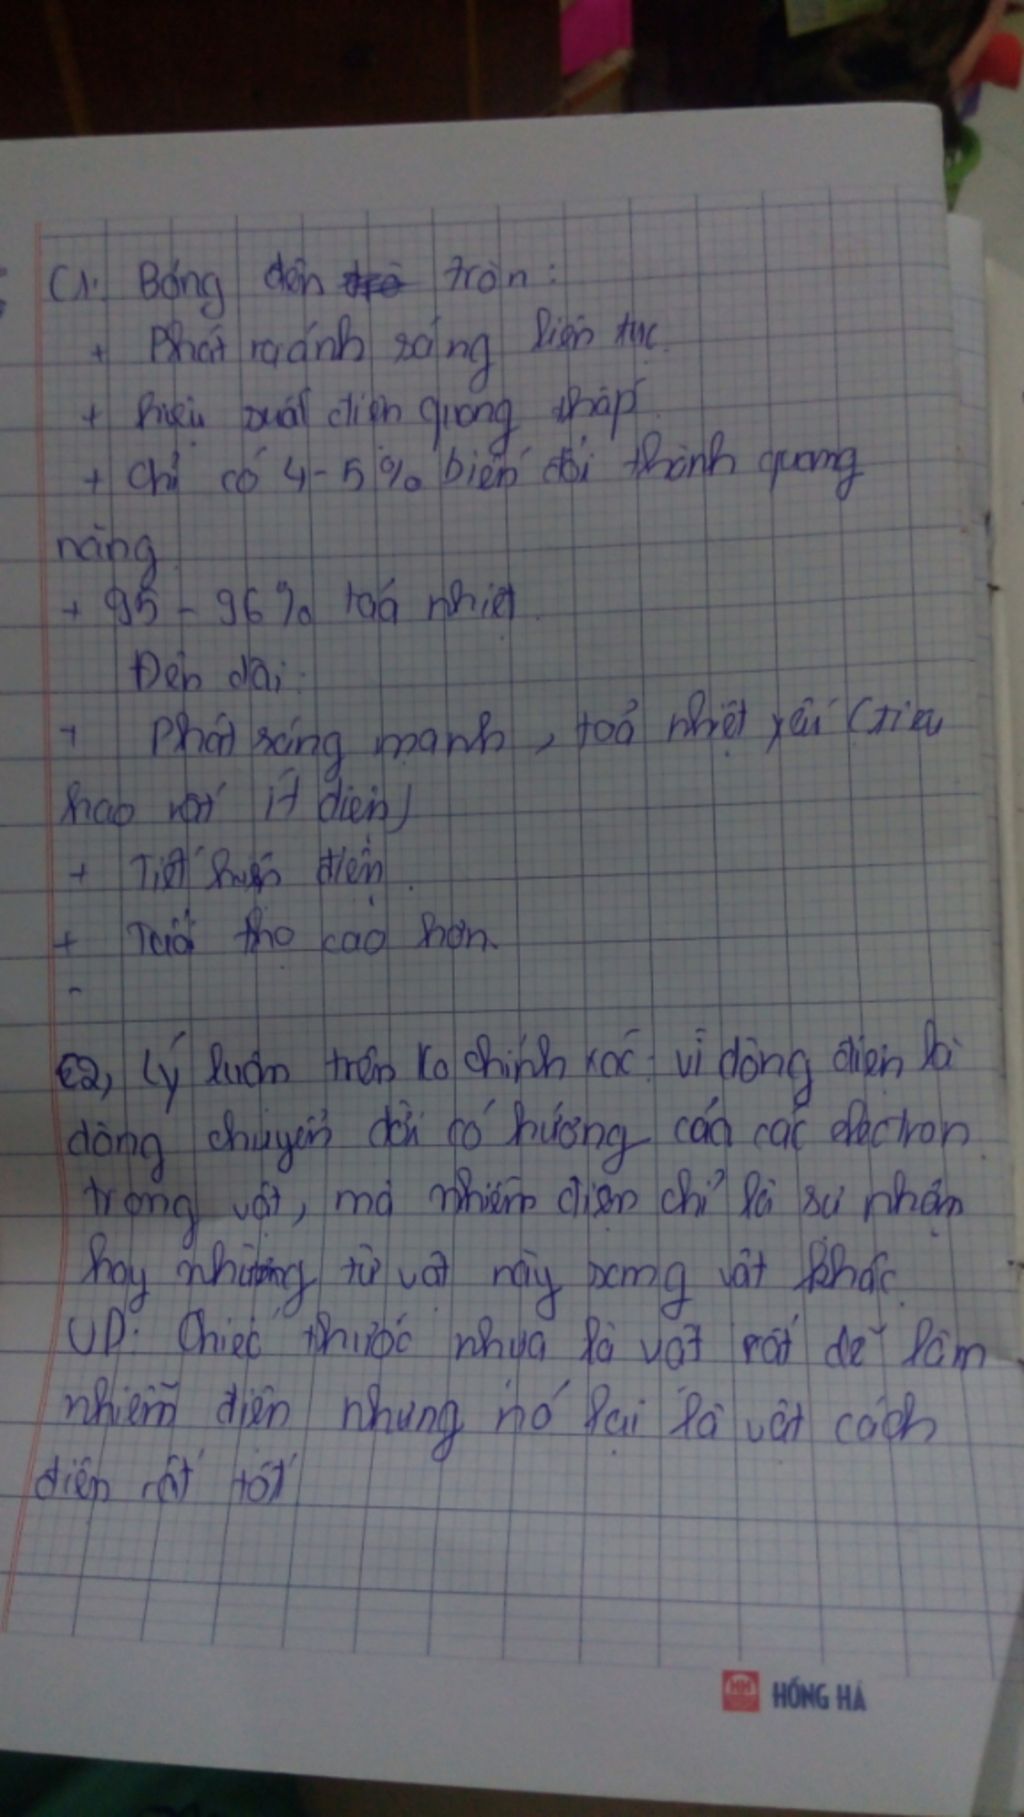 C1. Bóng đèn tròn:
+ Phát ra ánh sáng liên tục.
+ hiệu suất điện quang thấp.
+ chỉ có 4-5% biến đổi thành quang
năng
+ 95-96% toả nhiệt.
Đèn dài:
+ Phát sáng mạnh, toả nhiệt yếu (tiêu
hao rất ít điện)
+ Tiết kiệm điện.
+ Tuổi thọ cao hơn.
-
C2, Lý luận trên ko chính xác. vì dòng điện là
dòng chuyển dời có hướng của các electron
trong vật, mà nhiễm điện chỉ là sự nhận
hay nhường từ vật này sang vật khác.
VD: Chiếc thước nhựa là vật rất dễ làm
nhiễm điện nhưng nó lại là vật cách
điện rất tốt
HỒNG HÀ